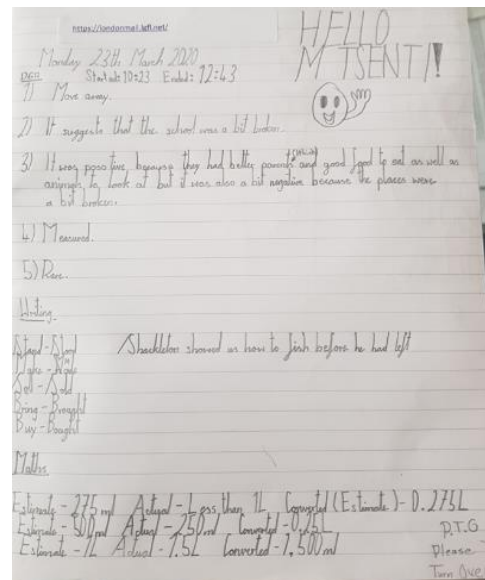 https://londonmail.lgfl.net/
HELLO
Mr TSENTI!
Monday 23th March 2020
DGR Started: 10:23 Ended: 12:43
1) Move away.
2) It suggests that the school was a bit broken.
3) It was positive because they had better parents and good food to eat as well as
animals to look at but it was also a bit negative because the places were
a bit broken.
4) Measured.
5) Rare.
Writing
Stand - Stood Shackleton showed us how to fish before he had left
Sell - Sold
Bring - Brought
Buy - Bought
Maths
Estimate - 275 ml Actual - Less than 1L Converted (Estimate) - 0.275L
Estimate - 500ml Actual - 250ml Converted - 0.25L
Estimate - 1L Actual - 1.5L Converted - 1,500ml
P.T.O
Please
Turn Over